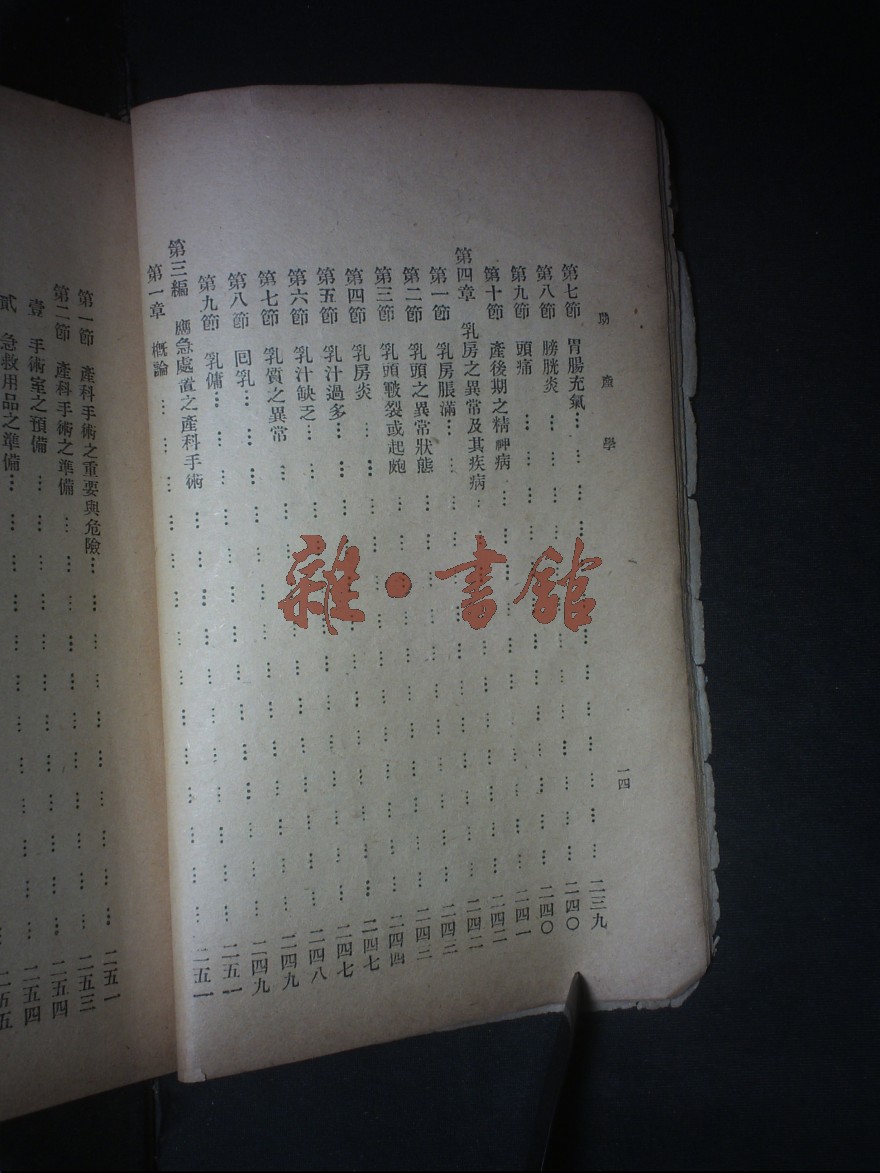 助產學
一四
第七節 胃腸充氣… … … 二三九
第八節 膀胱炎… … … 二四〇
第九節 頭痛… … … 二四〇
第十節 產後期之精神病… … … 二四一
第四章 乳房之異常及其疾病… … … 二四二
第一節 乳房脹滿… … … 二四二
第二節 乳頭之異常狀態… … … 二四三
第三節 乳頭皸裂或起皰… … … 二四三
第四節 乳房炎… … … 二四四
第五節 乳汁過多… … … 二四七
第六節 乳汁缺乏… … … 二四七
第七節 乳質之異常… … … 二四八
第八節 回乳… … … 二四九
第九節 乳傭… … … 二四九
第三編 應急處置之產科手術… … … 二五一
第一章 概論… … … 二五一
第一節 產科手術之重要與危險… … … 二五一
第二節 產科手術之準備… … … 二五三
壹 手術室之預備… … … 二五四
貳 急救用品之準備… … … 二五四
二五五
雜·書館